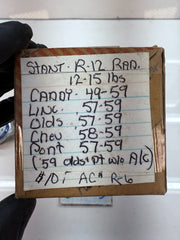 STANT. R-12 RAD.
12-15 lbs
CADDY. 49-59
LINC. 57-59
Olds. 57-59
Chev 58-59
Pont 57-59
('59 Olds + Pt w/o A/C)
#10 AC# R-6